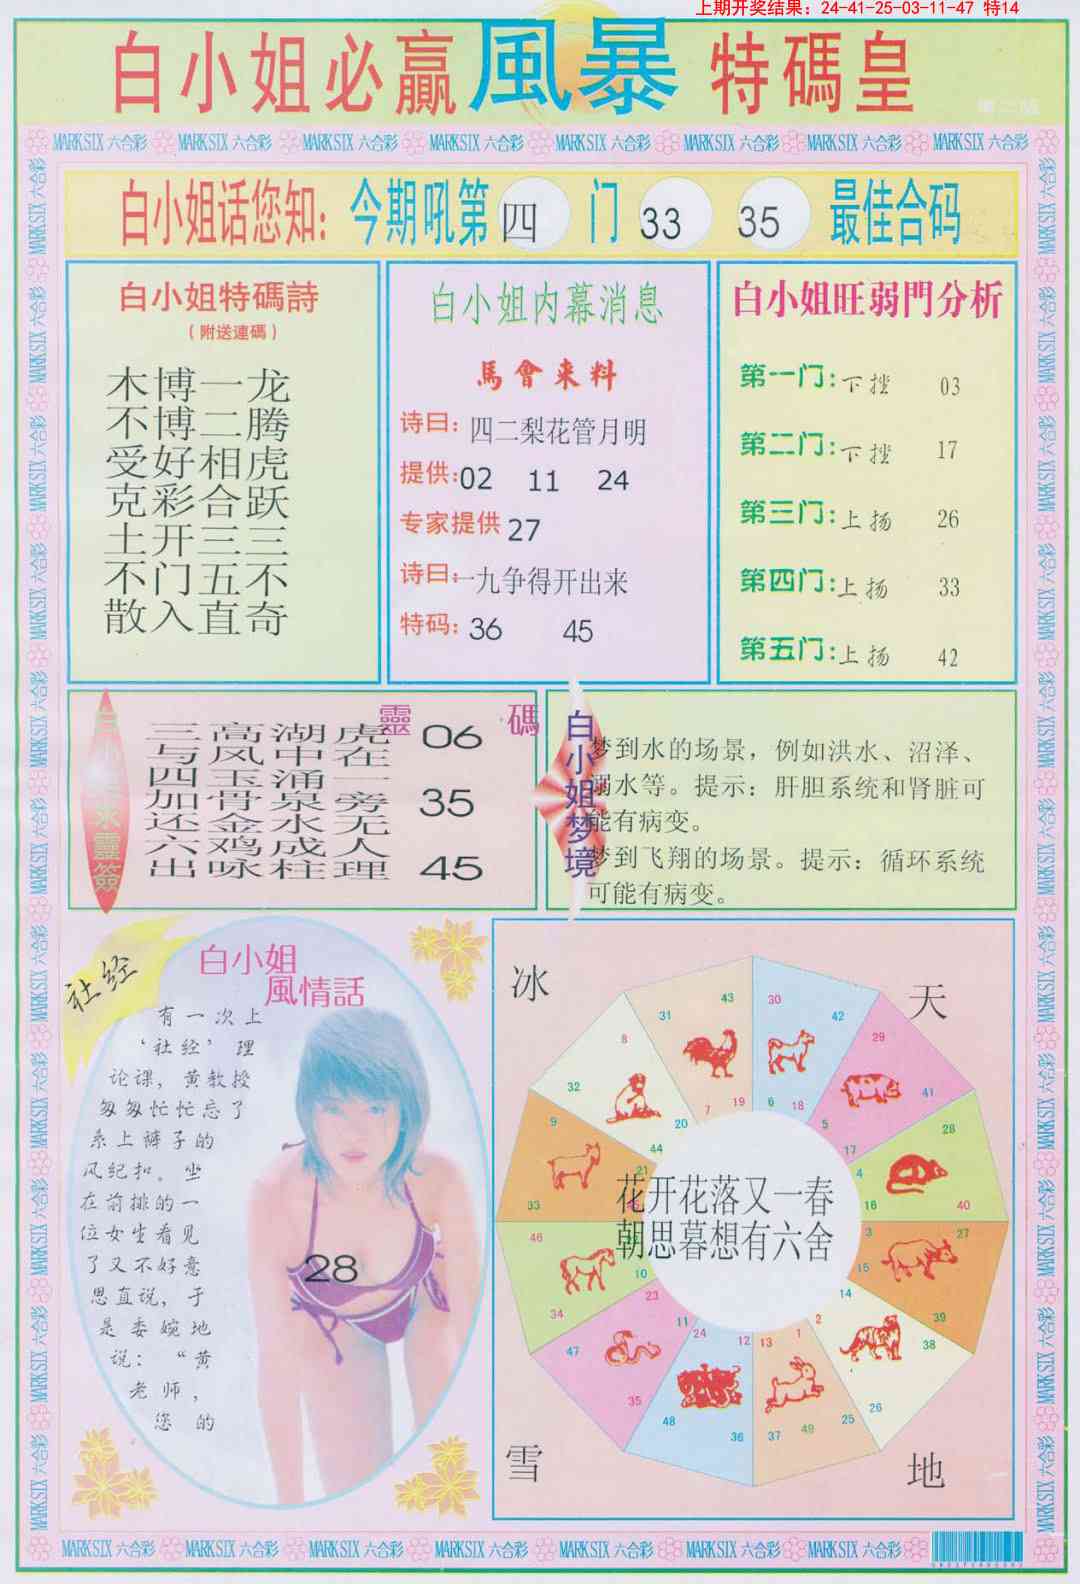 上期开奖结果：24-41-25-03-11-47 特14
白小姐必贏風暴 特碼皇
MARK SIX 六合彩 MARK SIX 六合彩 MARK SIX 六合彩 MARK SIX 六合彩 MARK SIX 六合彩 MARK SIX 六合彩 MARK SIX 六合彩 MARK SIX 六合彩
白小姐话您知：今期吼第 四 门 33 35 最佳合码
白小姐特碼詩
（附送連碼）
木博一龙
不博二腾
受好相虎
克彩合跃
土开三三
不门五不
散入直奇
白小姐内幕消息
馬會来料
诗曰：四二梨花管月明
提供：02 11 24
专家提供 27
诗曰：一九争得开出来
特码：36 45
白小姐旺弱門分析
第一门：下挫 03
第二门：下挫 17
第三门：上扬 26
第四门：上扬 33
第五门：上扬 42
靈 碼
三高湖虎
与风中在
四玉涌一
加骨泉旁
还金水无
六鸡成人
出咏柱理
06
35
45
白小姐梦境
梦到水的场景，例如洪水、沼泽、
溺水等。提示：肝胆系统和肾脏可
能有病变。
梦到飞翔的场景。提示：循环系统
可能有病变。
社经
白小姐
風情話
有一次上
‘社经’理
论课，黄教授
匆匆忙忙忘了
系上裤子的
风纪扣。坐
在前排的一
位女生看见
了又不好意
思直说，于
是委婉地
说：“黄
老师，
您的
28
冰
天
43 30
31 42
8 29
32 41
7 19 6 18
20 5
9 44 17 28
21 4
33 16 40
花开花落又一春
朝思暮想有六舍
46 3 27
10 15
34 23 14 39
11 24 12 13 1 2
47 38
35 26
48 25
36 37 49
雪
地
MARK SIX 六合彩 MARK SIX 六合彩 MARK SIX 六合彩 MARK SIX 六合彩 MARK SIX 六合彩 MARK SIX 六合彩 MARK SIX 六合彩